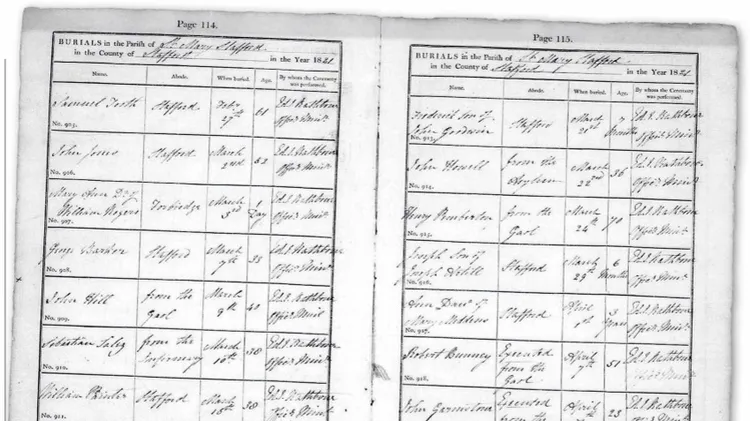 Page 114.
BURIALS in the Parish of St. Mary Stafford
in the County of Stafford in the Year 1821
Name. Abode. When buried. Age. By whom the Ceremony was performed.
Samuel Stafford Feby 27th Ed. J. Rathbone
No. 905. Offg Minr
John Jones Stafford March 2nd 52 Ed. J. Rathbone
No. 906. Offg Minr
Mary Ann Day
William Rogers Forbridge March 3rd 1 Day Ed. J. Rathbone
No. 907. Offg Minr
George Barker Stafford March 7th 33 Ed. J. Rathbone
No. 908. Offg Minr
John Hill from the Gaol March 9th 40 Ed. J. Rathbone
No. 909. Offg Minr
Sebastian from the Infirmary March 10th 38 Ed. J. Rathbone
No. 910. Offg Minr
William Stafford March 15th 38 Ed. J. Rathbone
No. 911. Offg Minr
Page 115.
BURIALS in the Parish of St. Mary Stafford
in the County of Stafford in the Year 1821
Name. Abode. When buried. Age. By whom the Ceremony was performed.
Frederick Son of
John Goodwin Stafford March 21st 7 Months Ed. J. Rathbone
No. 913. Offg Minr
John Howell from the Asylum March 22nd 36 Ed. J. Rathbone
No. 914. Offg Minr
Henry Pemberton from the Gaol March 24th 70 Ed. J. Rathbone
No. 915. Offg Minr
Joseph Son of
Joseph Stafford March 29th 6 Months Ed. J. Rathbone
No. 916. Offg Minr
Ann Daur of
Mary Stafford April 3 Years Ed. J. Rathbone
No. 917. Offg Minr
Robert Bunney Executed from the Gaol April 7th 51 Ed. J. Rathbone
No. 918. Offg Minr
John Executed from the April 23 Ed. J. Rathbone